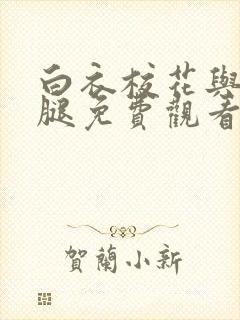 白衣校花與
腿免費觀看
賀蘭小新